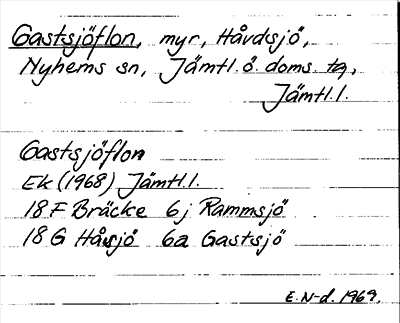 Gastsjöflon, myr, Håvdsjö,
Nyhems sn, Jämtl. ö. doms. tg,
Jämtl. l.
Gastsjöflon
Ek (1968) Jämtl. l.
18 F Bräcke 6j Rammsjö
18 G Håsjö 6a Gastsjö
E. N-d. 1969.